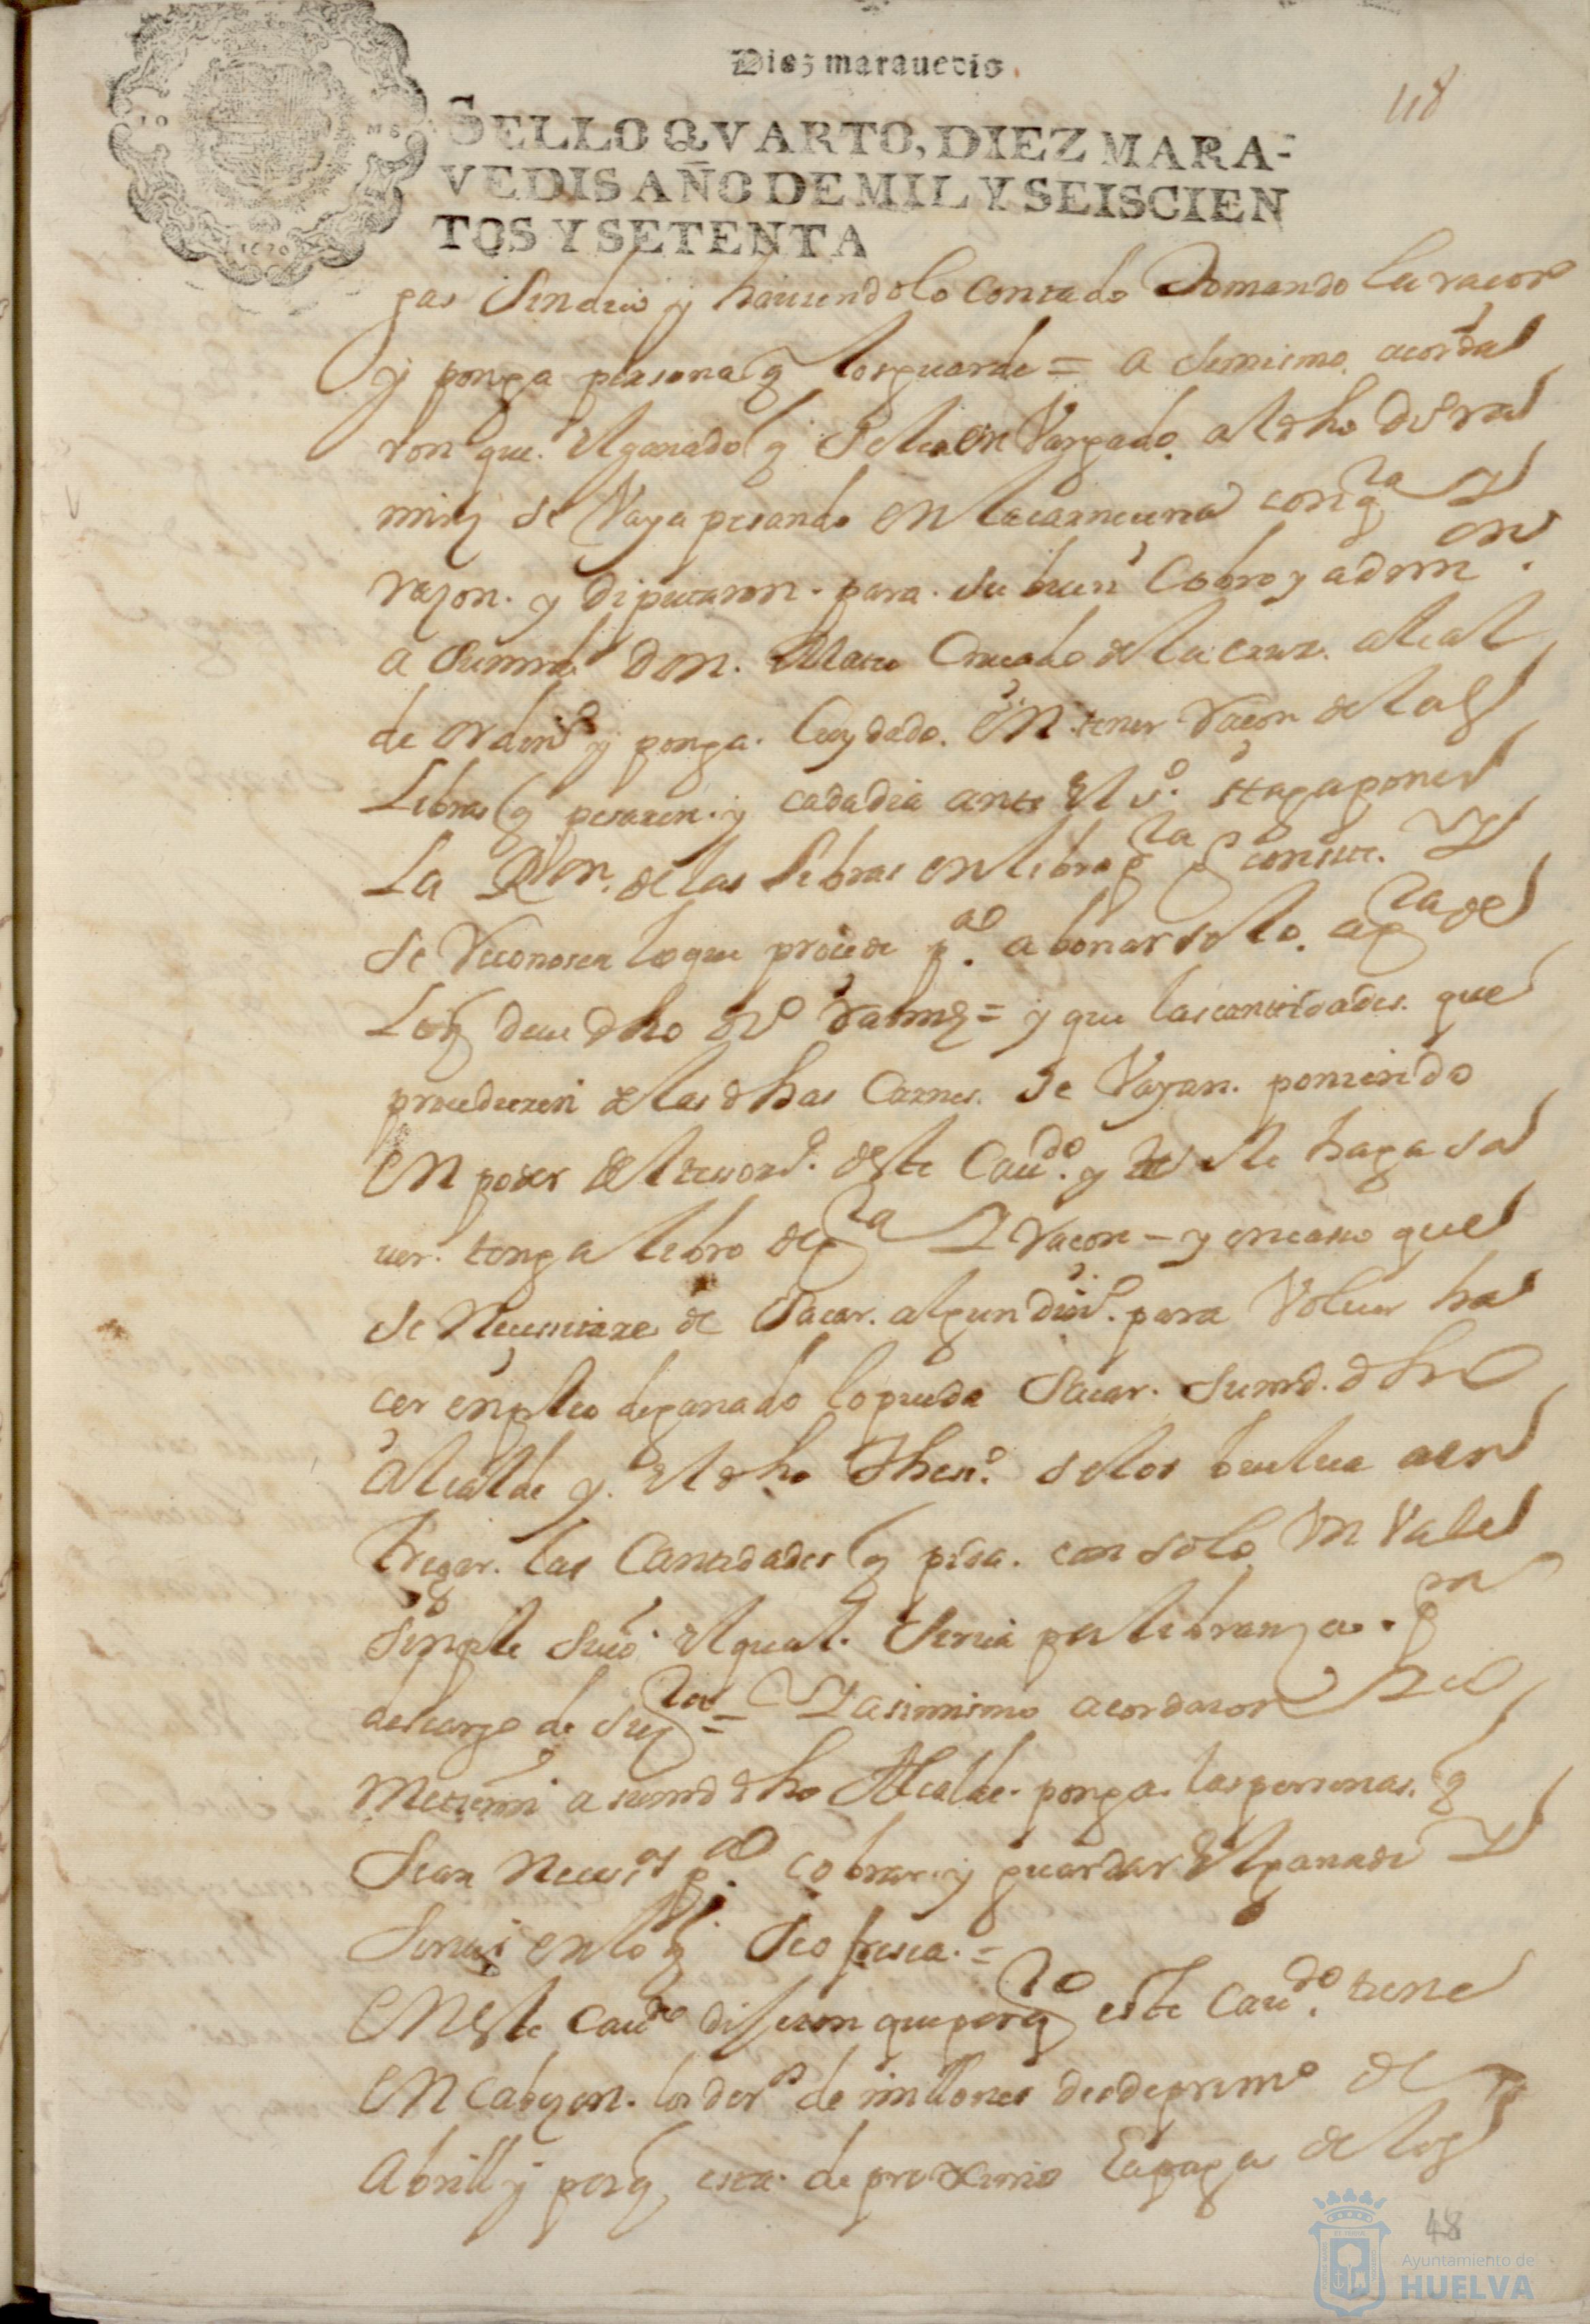 Diez marauedis.
118
SELLO QVARTO, DIEZ MARA-
VEDIS AÑO DE MIL Y SEISCIEN
TOS Y SETENTA
1670
gas Sindico y hauiendolo contado tomando la racon
y ponga persona q los guarde = a simismo acorda
ron que el ganado q se en al dho
se Vaya pesando en la carneceria con qta y
razon. y diputaron. para. su buen Cobro y admon
a sumrd don. Mateo de la cruz. alcal
de ordinο y ponga. Cuydado. en tener racon de las
Libras q pesaren. y cada dia ante el sο. haga poner
La Ron. de las libras en libro q pa conste. y
se reconosca lo que procede pa. abonarselo. a qta de
Lo q deue dho = y que las cantidades. que
procedieren de las dhas Carnes. se Vayan. poniendo
en poder del tesord. deste Caudo. y se le haga sa
uer. tenga libro de qta y racon – y en caso que
se Necesitare de Sacar. algun dinο. para Voluer ha
cer enpleo de ganado lo pueda Sacar. sumrd. dho
Alcalde y. el dho thesο. se los buelua a en
tregar. las Cantidades q pida. con solo Vn Vale
Simple suio. el qual. Sirua por libranza.
descargo de su qta = Y asimismo acordaron Re
metieron a sumrd dho Alcalde. ponga. las personas. q
Sean Necesas pa. cobrar. y guardar el ganado y
Siruan en lo q Se ofresca. =
En este caudo dijeron que por qto este Caudo. tiene
En Cabezon. los ders de millones desde primo de
Abrill y porq esta. de proximo la paga de los
48
Ayuntamiento de
HUELVA